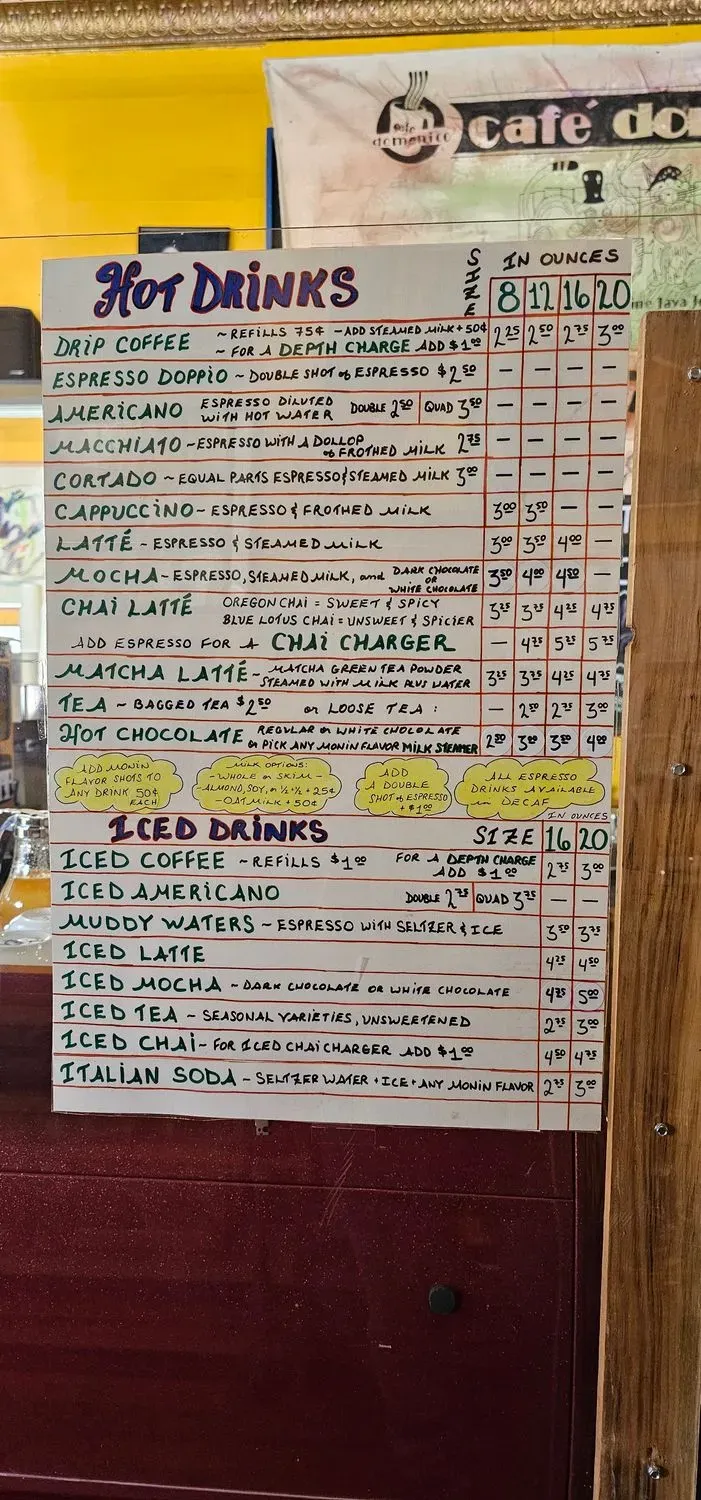 cafe domenico
café do
me Java J
HOT DRINKS SIZE IN OUNCES
8 12 16 20
DRIP COFFEE ~ REFILLS 75¢ - ADD STEAMED MILK + 50¢
~ FOR A DEPTH CHARGE ADD $1.00 2.25 2.50 2.75 3.00
ESPRESSO DOPPIO ~ DOUBLE SHOT of ESPRESSO $2.50 — — — —
AMERICANO ESPRESSO DILUTED
WITH HOT WATER DOUBLE 2.50 QUAD 3.50 — — — —
MACCHIATO - ESPRESSO WITH A DOLLOP
of FROTHED MILK 2.75 — — — —
CORTADO ~ EQUAL PARTS ESPRESSO & STEAMED MILK 3.00 — — — —
CAPPUCCINO ~ ESPRESSO & FROTHED MILK 3.00 3.50 — —
LATTÉ - ESPRESSO & STEAMED MILK 3.00 3.50 4.00 —
MOCHA - ESPRESSO, STEAMED MILK, and DARK CHOCOLATE
OR
WHITE CHOCOLATE 3.50 4.00 4.50 —
CHAI LATTÉ OREGON CHAI = SWEET & SPICY
BLUE LOTUS CHAI = UNSWEET & SPICIER 3.25 3.75 4.25 4.75
ADD ESPRESSO FOR A CHAI CHARGER — 4.75 5.25 5.75
MATCHA LATTÉ - MATCHA GREEN TEA POWDER
STEAMED WITH MILK PLUS WATER 3.25 3.75 4.25 4.75
TEA ~ BAGGED TEA $2.50 or LOOSE TEA : — 2.50 2.75 3.00
HOT CHOCOLATE REGULAR or WHITE CHOCOLATE
or PICK ANY MONIN FLAVOR MILK STEAMER 2.50 3.00 3.50 4.00
ADD MONIN
FLAVOR SHOTS TO
ANY DRINK 50¢
EACH
MILK OPTIONS:
- WHOLE or SKIM -
- ALMOND, SOY, or ½+½ + 25¢
- OAT MILK + 50¢
ADD
A DOUBLE
SHOT of ESPRESSO
+ $1.00
ALL ESPRESSO
DRINKS AVAILABLE
in DECAF
IN OUNCES
ICED DRINKS SIZE 16 20
ICED COFFEE ~ REFILLS $1.00 FOR A DEPTH CHARGE
ADD $1.00 2.75 3.00
ICED AMERICANO DOUBLE 2.75 QUAD 3.75 — —
MUDDY WATERS - ESPRESSO WITH SELTZER & ICE 3.50 3.75
ICED LATTE 4.25 4.50
ICED MOCHA ~ DARK CHOCOLATE OR WHITE CHOCOLATE 4.75 5.00
ICED TEA ~ SEASONAL VARIETIES, UNSWEETENED 2.75 3.00
ICED CHAI ~ FOR ICED CHAI CHARGER ADD $1.00 4.50 4.75
ITALIAN SODA ~ SELTZER WATER + ICE + ANY MONIN FLAVOR 2.75 3.00